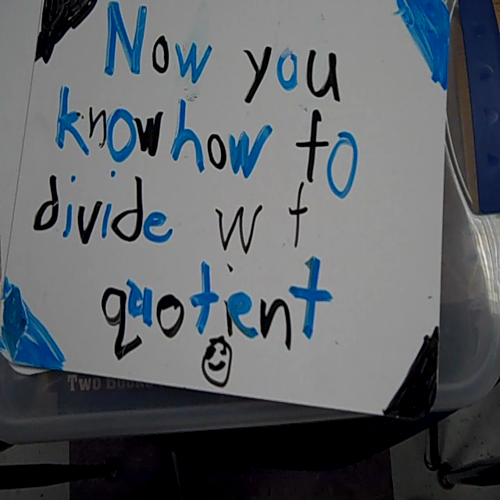 Now you
know how to
divide w t
quotient
Two Bo